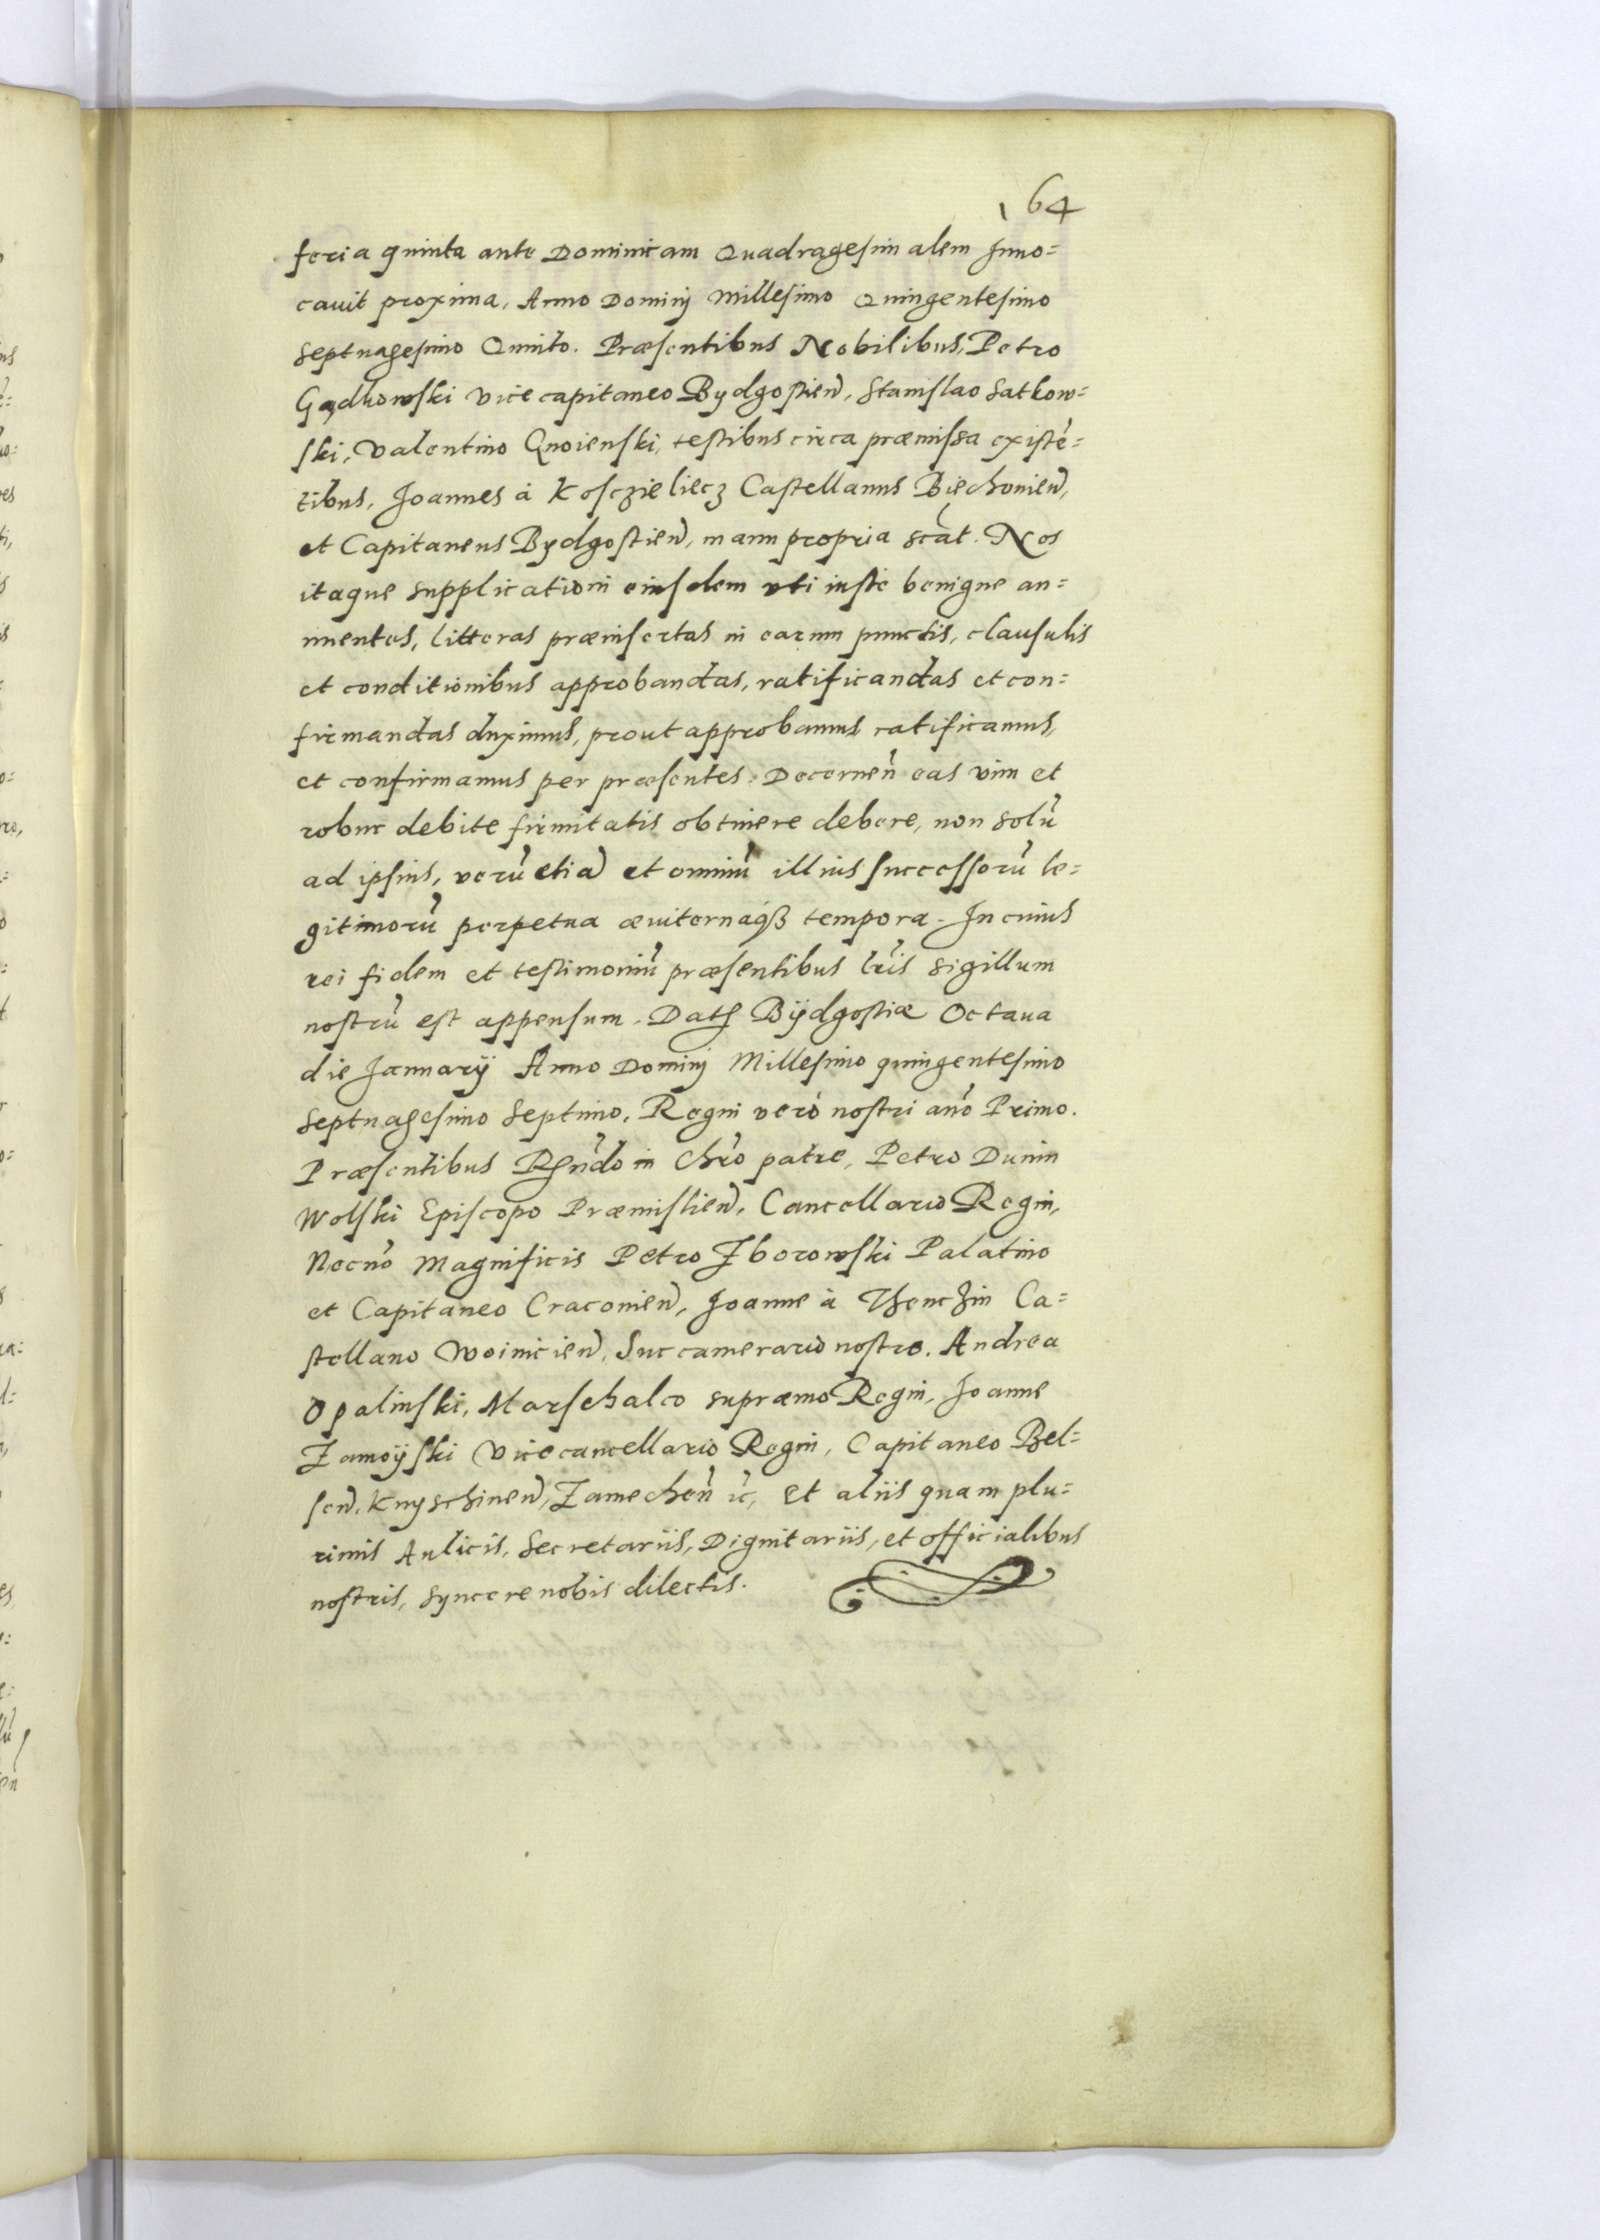 164
feria quinta ante Dominicam Quadragesimalem Inuo=
cauit proxima, Anno Dominij Millesimo Quingentesimo
Septuagesimo Quinto. Præsentibus Nobilibus, Petro
Gądkowski Vicecapitaneo Bydgostień, Stanislao Satkow=
ski, Valentino Gnoienski, testibus circa præmissa existē=
tibus, Joannes à Kosczieliecz Castellanus Biechonień,
et Capitaneus Bydgostień, manu propria scāt. Nos
itaque supplicationi eiusdem uti iustæ benigne an=
nuentes, litteras præinsertas in earum punctis, clausulis
et conditionibus approbandas, ratificandas et con=
firmandas duximus, prout approbamus ratificamus,
et confirmamus per præsentes. Decerneń eas vim et
robur debite firmitatis obtinere debere, non solū
ad ipsius, verū etiā et omniū illius successorū le=
gitimorū perpetua æviternaq́ʒ tempora. In cuius
rei fidem et testimoniū præsentibus lr̄is Sigillum
nostrū est appensum. Datʒ Bÿdgostiæ Octaua
die Januarÿ Anno Dominij Millesimo quingentesimo
Septuagesimo Septimo, Regni verò nostri anō Primo.
Præsentibus Rn̄do in Chrō patre, Petro Dunin
Wolski Episcopo Præmislień, Cancellario Regni,
Necnō Magnificis Petro Zborowski Palatino
et Capitaneo Cracouień, Joanne à Thenczin Ca=
stellano Woinicień, Succamerario nostro. Andrea
Opalinski, Marschalco supræmo Regni, Joanne
Zamoÿski Vicecancellario Regni, Capitaneo Bel=
seń, Knyschineń, Zamecheń ꝛc, et aliis quam plu=
rimis Aulicis, Secretariis, Dignitariis, et officialibus
nostris, syncere nobis dilectis.